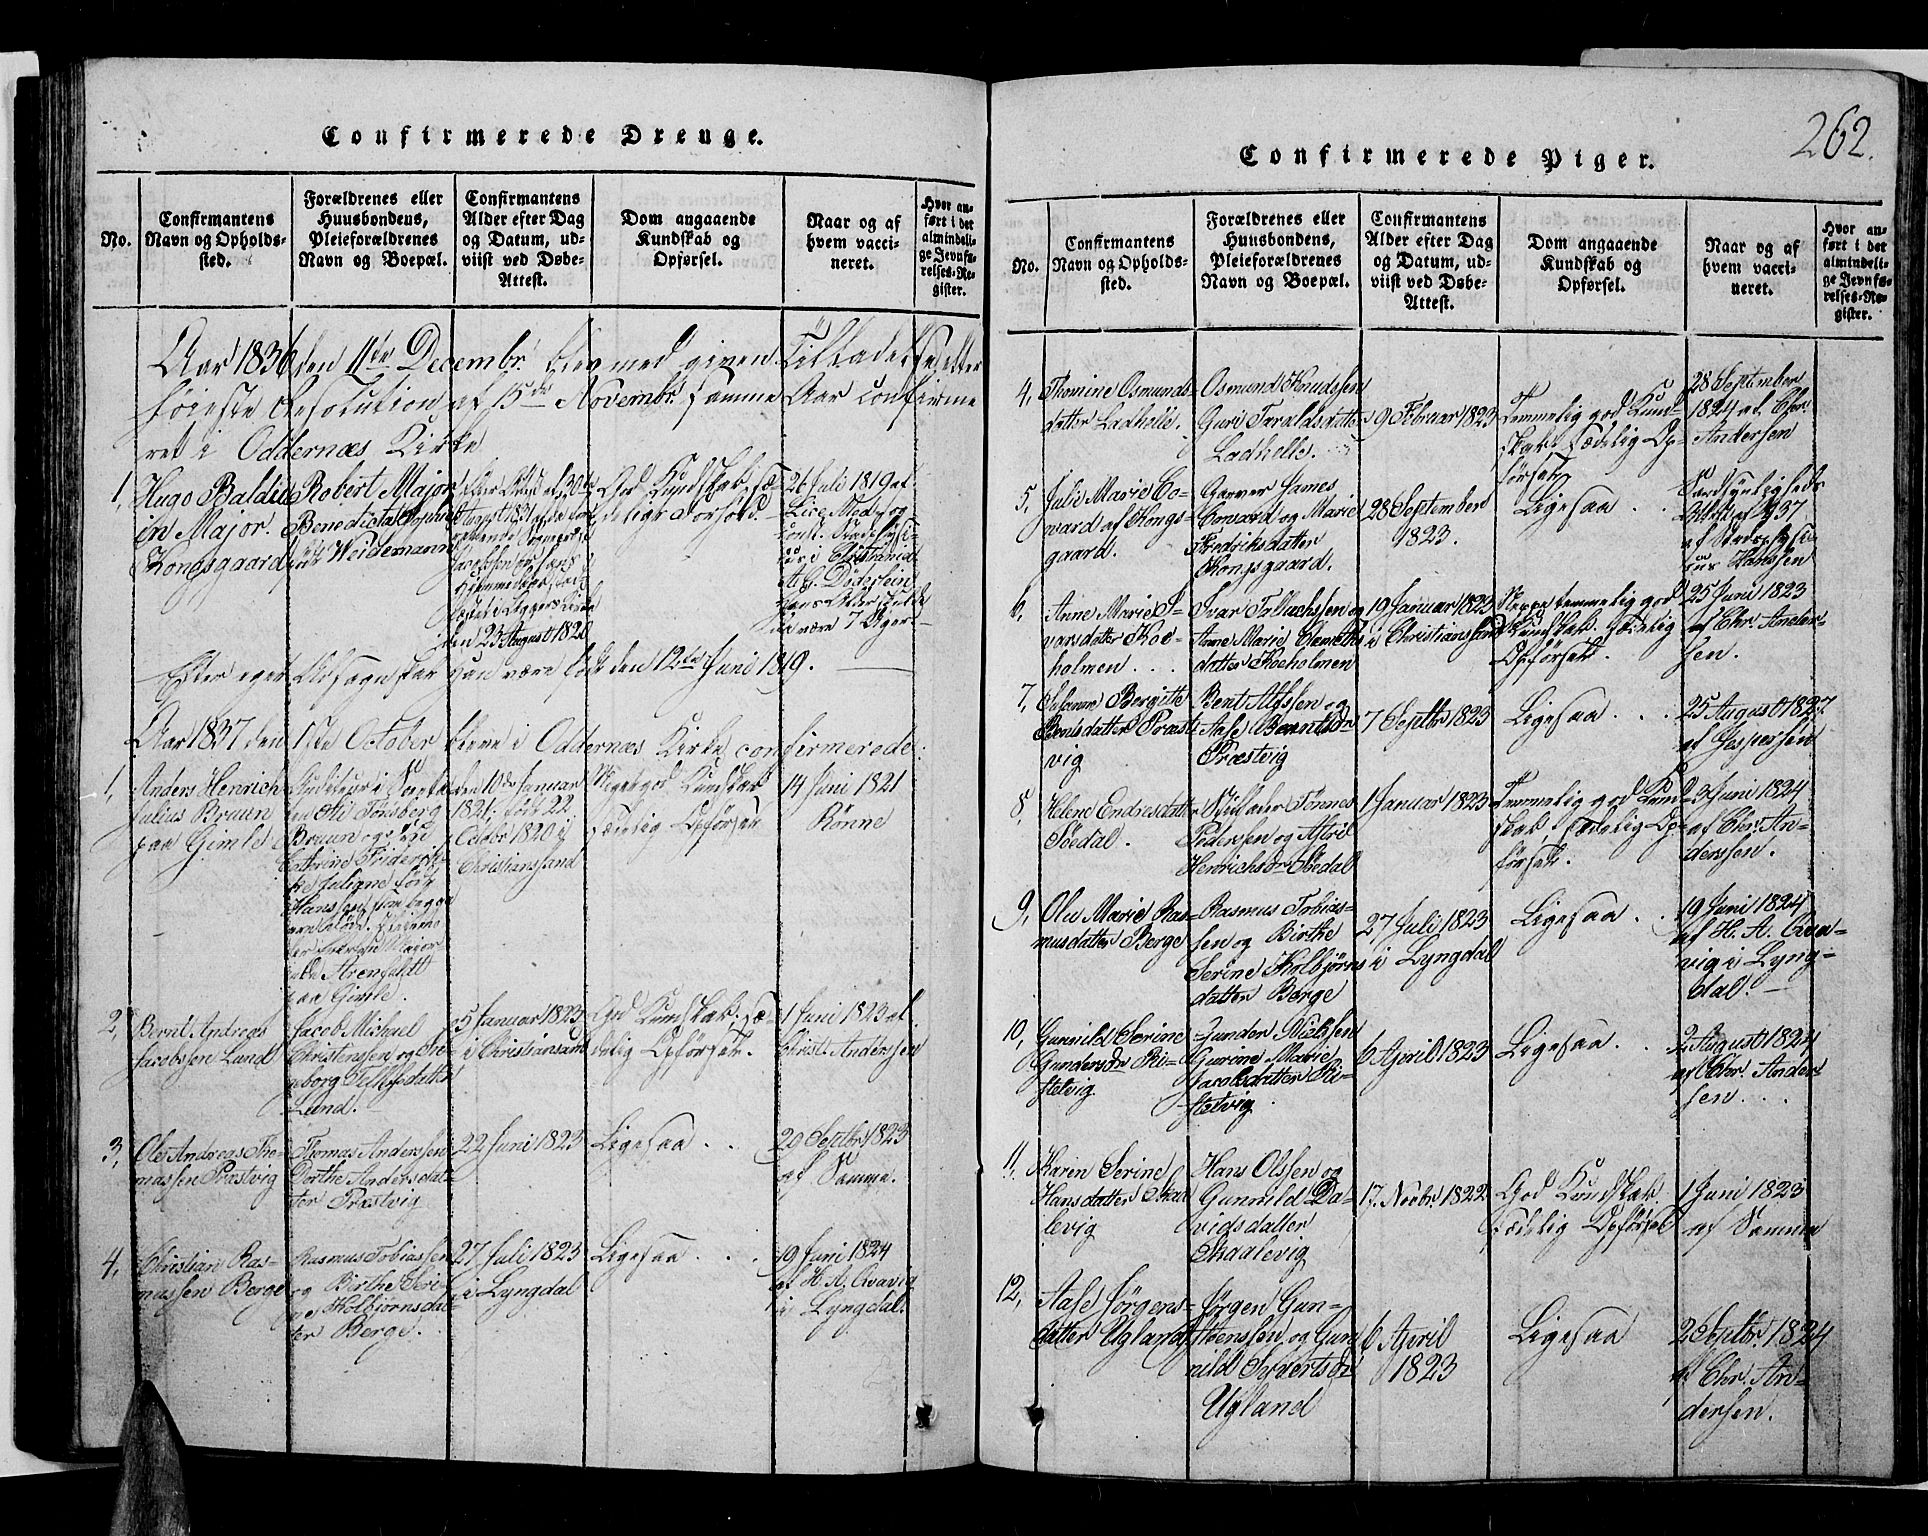 262.
Confirmerede Drenge.
No.
Confirmantens
Navn og Opholds-
sted.
Forældrenes eller
Huusbondens,
Pleieforældrenes
Navn og Boepæl.
Confirmantens
Alder efter Dag
og Datum, ud-
viist ved Døbe-
Attest.
Dom angaaende
Kundskab og
Opførsel.
Naar og af
hvem vacci-
neret.
Hvor an-
ført i det
almindeli-
ge Jevnfø-
relses-Re-
gister.
Aar 1836 den 11te Decembr. blev med given Tilladelse efter
høieste Resolution af 15de Novembr. samme Aar confirme
ret i Oddernæs Kirke
1,
Hugo Baldu
in Major.
Kongsgaard
Robert Major
Benedicta Sophie
født Weidemann
Aggers Kirke
den 23 August 1820
God Kundskab, sæ-
delige Forhold.
26 Juli 1819 af
Lice. Med. og
const. Stadsfysi-
cus i Christiania
A. C. Døderlein
hans Alder skulde
da være 7 Uger
Efter eget Udsagn skal han være født den 12te Juni 1819.
Aar 1837 den 1ste October bleve i Oddernæs Kirke confirmerede:
1,
Anders Henrich
Julius Bruun
paa Gimle
Auditeur i
Tønsberg
Bruun og
Cathrine
Juliane født
Hanssen
Major
Arenfeldt
paa Gimle.
den 10de Januar
1821; født 22
Octobr 1820 i
Christianssand
Meget god Kundskab
sædelig Opførsel
14 Juni 1821
Rønne
2,
Bernt Andreas
Jacobssen Lund
Jacob Michael
Christenssen og In
geborg Tellefsdatter
Lund.
5 Januar 1823
i Christianssand
God Kundskab, sæ-
delig Opførsel.
1 Juni 1823 af
Christ. Anderssen
3,
Ole Andreas Tho-
massen Præstvig
Thomas Anderssen
Dorthe Andersdat-
ter Præstvig
22 Juni 1823
Ligesaa . .
20 Septbr. 1823
af Samme.
4,
Christian Ras-
mussen Berge
Rasmus Tobiassen
og Birthe Seri-
ne Kolbjørnsdat-
ter Berge.
27 Juli 1823
i Lyngdal
Ligesaa . .
19 Juni 1824
af H. A. Qvavig
i Lyngdal.
Confirmerede Piger.
No.
Confirmantens
Navn og Opholds-
sted.
Forældrenes eller
Huusbondens,
Pleieforældrenes
Navn og Boepæl.
Confirmantens
Alder efter Dag
og Datum, ud-
viist ved Døbe-
Attest.
Dom angaaende
Kundskab og
Opførsel.
Naar og af
hvem vacci-
neret.
Hvor an-
ført i det
almindeli-
ge Jevnfø-
relses-Re-
gister.
4,
Thomine Osmunds
datter Ladhelle.
Osmund Knudssen
Guri Taraldsdatter
Ladhelle.
9 Februar 1823
Temmelig god Kund-
skab, sædelig Op-
førsel
28 September
1824 af Chr.
Andersen
5,
Juli Marie Co-
ward af Kongs-
gaard.
Garver James
Coward og Marie
Fredriksdatter
Kongsgaard.
28 September
1823.
Ligesaa . .
af Stadsphysi-
cus Hanssen
6,
Anne Marie I-
varsdatter Koe-
holmen . . .
Ivar Tolluchssen og
Anne Marie Clemets
datter Koeholmen
19 Januar 1823
i Christianssand
Neppe temmelig god
Kundskab, sædelig
Opførsel.
25 Juni 1823
af Chr. Ander-
sen.
7,
Susanne Bergitte
Bentsdatter Præst-
vig
Bent Alfssen og
Aase Berntsdr
Præstvig
7 Septbr 1823
Ligesaa . . .
25 August 1827
af Jespersen
8,
Helene Endresdatter
Søedal.
Tønnes
Pederssen og Astri
Henrichsdr Søedal
1 Januar 1823
Temmelig god Kund
skab, sædelig Op-
førsel.
23 Juni 1824
af Chr. An-
derssen.
9,
Olu Marie Ras-
musdatter Berge
Rasmus Tobias-
sen og Birthe
Serine Kolbjørns
datter Berge
27 Juli 1823
i Lyngdal
Ligesaa . .
19 Juni 1824
af H. A. Qva-
vig i Lyng-
dal.
10,
Gunnild Serine
Gundersdr Ki-
stelvig
Gunder Nielssen
Gurine Marie
Jacobsdatter Ki-
stelvig
6 April 1823
Ligesaa . .
2 August 1824
af Chr. Ander-
sen . . .
11,
Karen Serine
Hansdatter Skaa
levig
Hans Olssen og
Gunnild Da-
vidsdatter
Skaalevig
17. Novbr. 1822
God Kundskab.
sædelig Opførsel
1 Juni 1823
af Samme
12,
Aase Jørgens-
datter Ugland
Jørgen Gun-
steenssen og Gun
nild Syvertsdr
Ugland
6 April
1823
Ligesaa
2 Septbr. 1824
af Chr. An-
dersen.